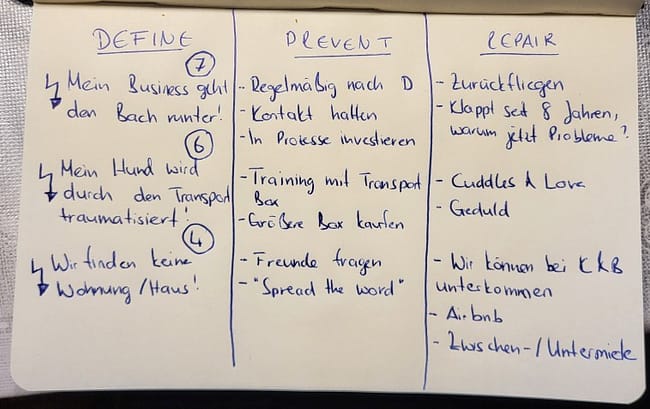 DEFINE
7
Mein Business geht
den Bach runter!
6
Mein Hund wird
durch den Transport
traumatisiert!
4
Wir finden keine
Wohnung/Haus!
PREVENT
- Regelmäßig nach D
- Kontakt halten
- In Prozesse investieren
- Training mit Transport
Box
- Größere Box kaufen
- Freunde fragen
- "Spread the word"
REPAIR
- Zurückfliegen
- Klappt seit 8 Jahren,
warum jetzt Probleme?
- Cuddles & Love
- Geduld
- Wir können bei C&B
unterkommen
- Airbnb
- Zwischen-/Untermiete